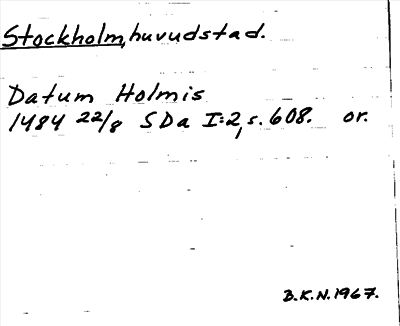 Stockholm, huvudstad.
Datum Holmis
1484 22/8 SDa I:2, s. 608. or.
B.K.N. 1967.